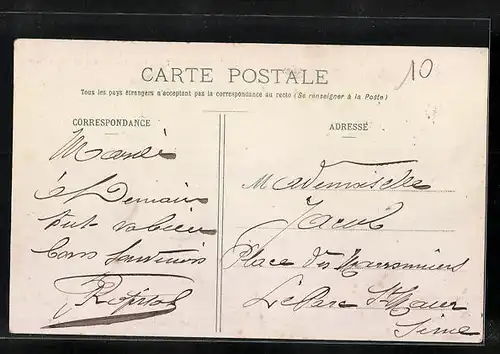 10
CARTE POSTALE
Tous les pays étrangers n'acceptent pas la correspondance au recto (Se renseigner à la Poste)
CORRESPONDANCE
ADRESSE
Mardi
à Demain
tout
bons souvenirs
Mademoiselle
Jacob
Place des
Le Parc St Maur
Seine